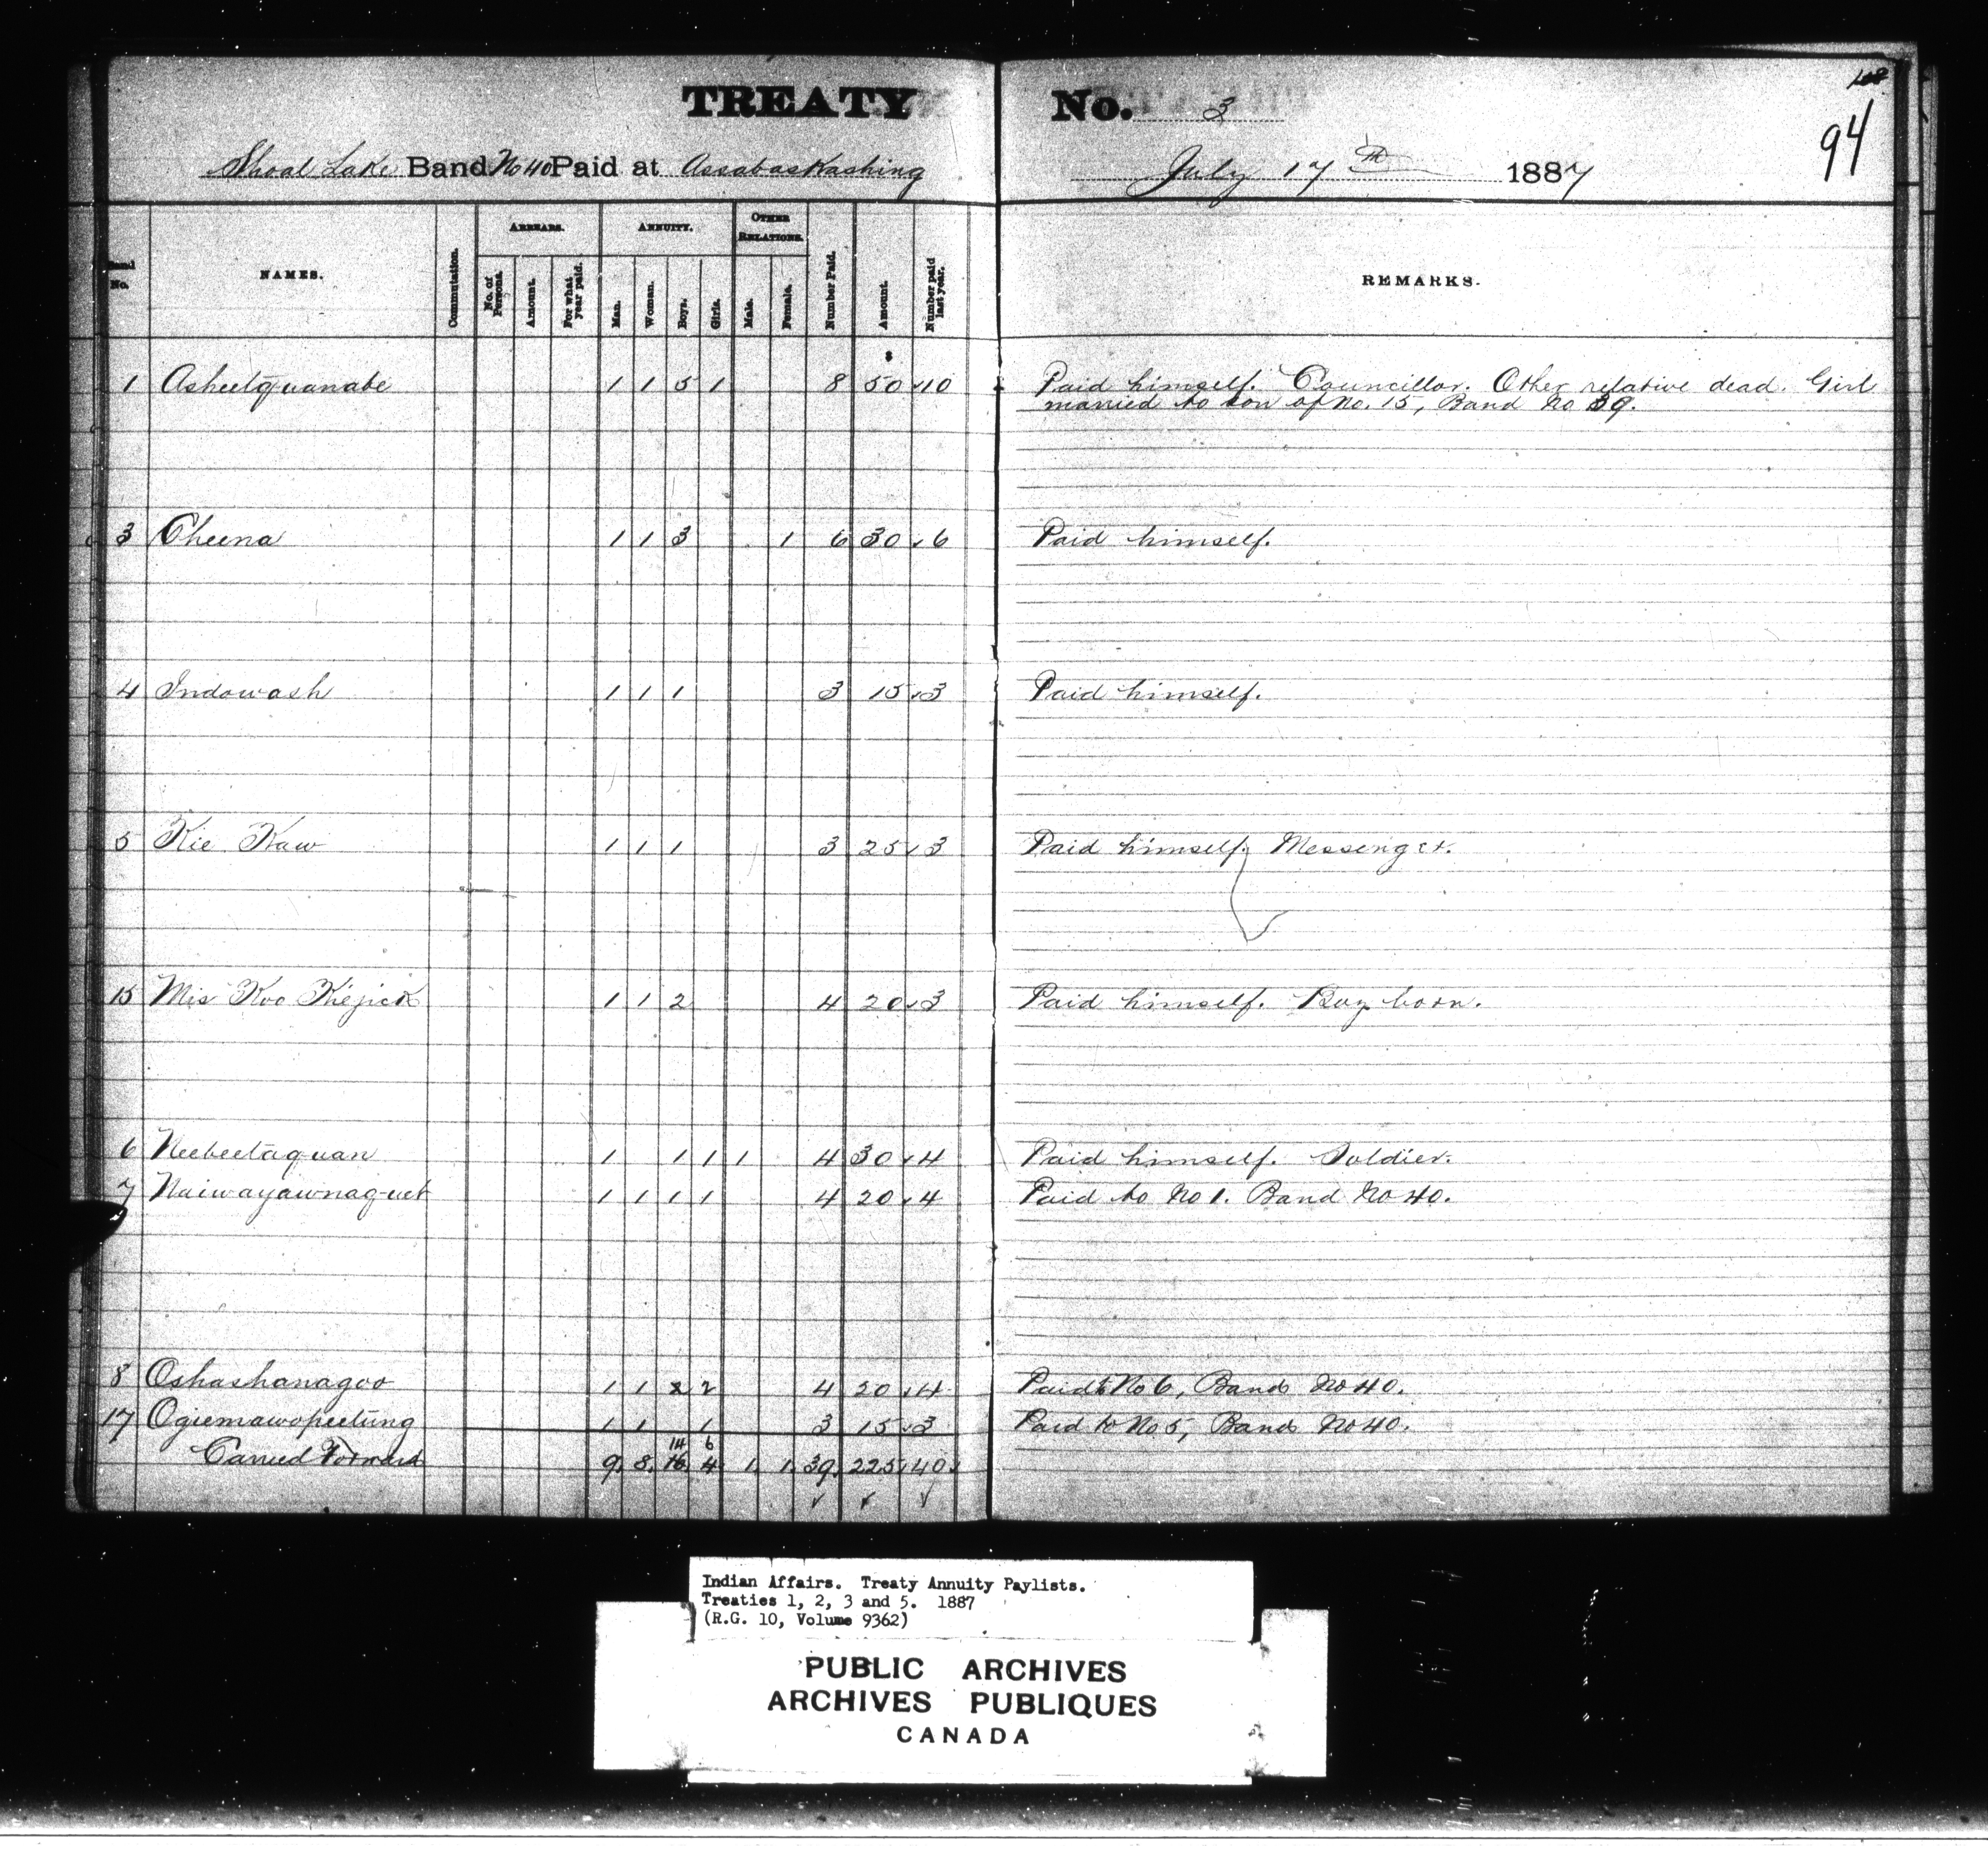 TREATY No. 3
94
Shoal Lake Band No 40 Paid at Assabaskashing July 17th 1887
No. NAMES. Commutation. ARREARS. No. of Persons. Amount. For what year paid. ANNUITY. Man. Woman. Boys. Girls. OTHER RELATIONS. Male. Female. Number Paid. Amount. Number paid last year. REMARKS.
$
1 Asheetquanabe 1 1 5 1 8 50 10 Paid himself. Councillor. Other relative dead. Girl
married to son of No. 15, Band No 39.
3 Cheena 1 1 3 1 6 30 6 Paid himself.
4 Indowash 1 1 1 3 15 3 Paid himself.
5 Kie Kaw 1 1 1 3 25 3 Paid himself. Messenger.
15 Mis Koo Kiejick 1 1 2 4 20 3 Paid himself. Boy born.
6 Neebeetaquan 1 1 1 1 4 30 4 Paid himself. Soldier.
7 Naiwayawnaquet 1 1 1 1 4 20 4 Paid to No 1. Band No 40.
8 Oshashanagoo 1 1 2 4 20 4 Paid to No 6, Band No 40.
17 Ogiemawopeetung 1 1 1 3 15 3 Paid to No 5, Band No 40.
14 6
Carried Forward 9. 8. 16 4 1. 1. 39. 225. 40.
Indian Affairs. Treaty Annuity Paylists.
Treaties 1, 2, 3 and 5. 1887
(R.G. 10, Volume 9362)
PUBLIC ARCHIVES
ARCHIVES PUBLIQUES
CANADA